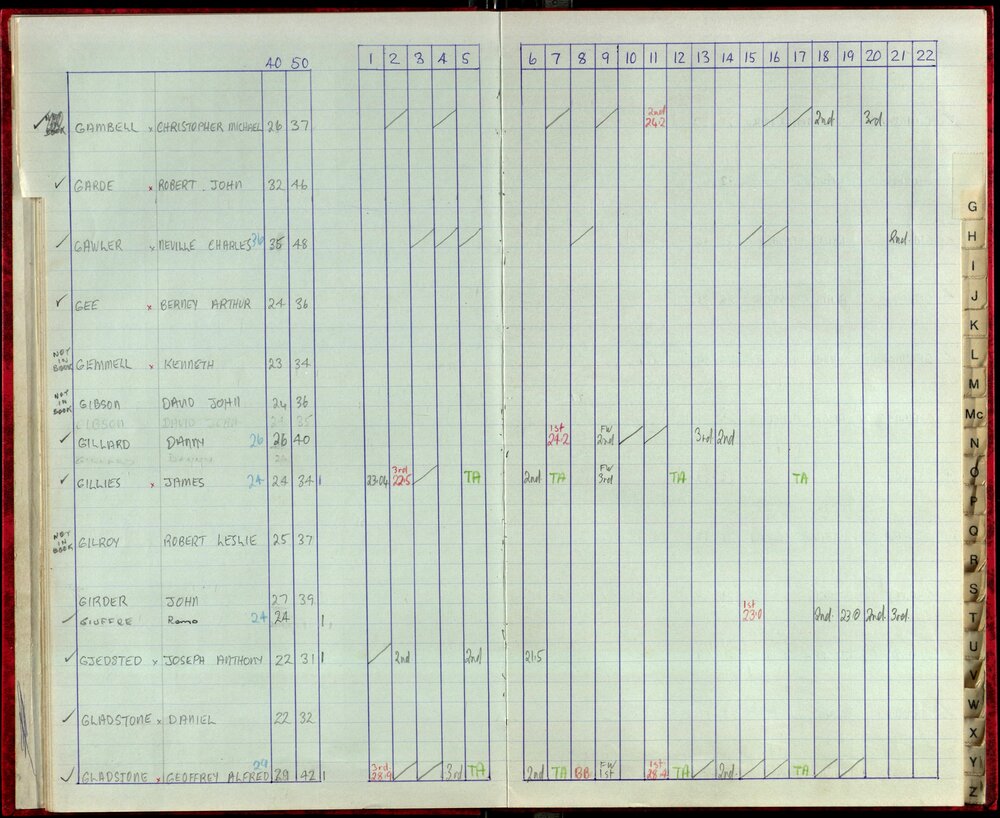 40 50 1 2 3 4 5 6 7 8 9 10 11 12 13 14 15 16 17 18 19 20 21 22
✓ BOOK GAMBELL x CHRISTOPHER MICHAEL 26 37 / / / / 2nd 24.2 / / 2nd 3rd
✓ GARDE x ROBERT JOHN 32 46
✓ GAWLER x NEVILLE CHARLES 36 35 48 / / / / / / 2nd
✓ GEE x BERNEY ARTHUR 24 36
NOT IN BOOK GEMMELL x KENNETH 23 34
NOT IN BOOK GIBSON DAVID JOHN 24 36
GIBSON DAVID JOHN 35
✓ GILLARD DANNY 26 26 40 1st 24.2 FW 2nd / / 3rd 2nd
GILLARD DANNY 26
✓ GILLIES x JAMES 24 24 34 1 23.04 3rd 22.5 / TA 2nd TA FW 3rd TA TA
NOT IN BOOK GILROY ROBERT LESLIE 25 37
GIRDER JOHN 27 39
✓ GIUFFRE Remo 24 24 1 1st 23.0 2nd 23.0 2nd 3rd
✓ GJEDSTED x JOSEPH ANTHONY 22 31 1 / 2nd 2nd 21.5
✓ GLADSTONE x DANIEL 22 32
✓ GLADSTONE x GEOFFREY ALFRED 29 29 42 1 3rd 28.9 / / 3rd TA 2nd TA BB FW 1st 1st 28.4 TA / 2nd / / TA / /
G
H
I
J
K
L
M
Mc
N
O
P
Q
R
S
T
U
V
W
X
Y
Z